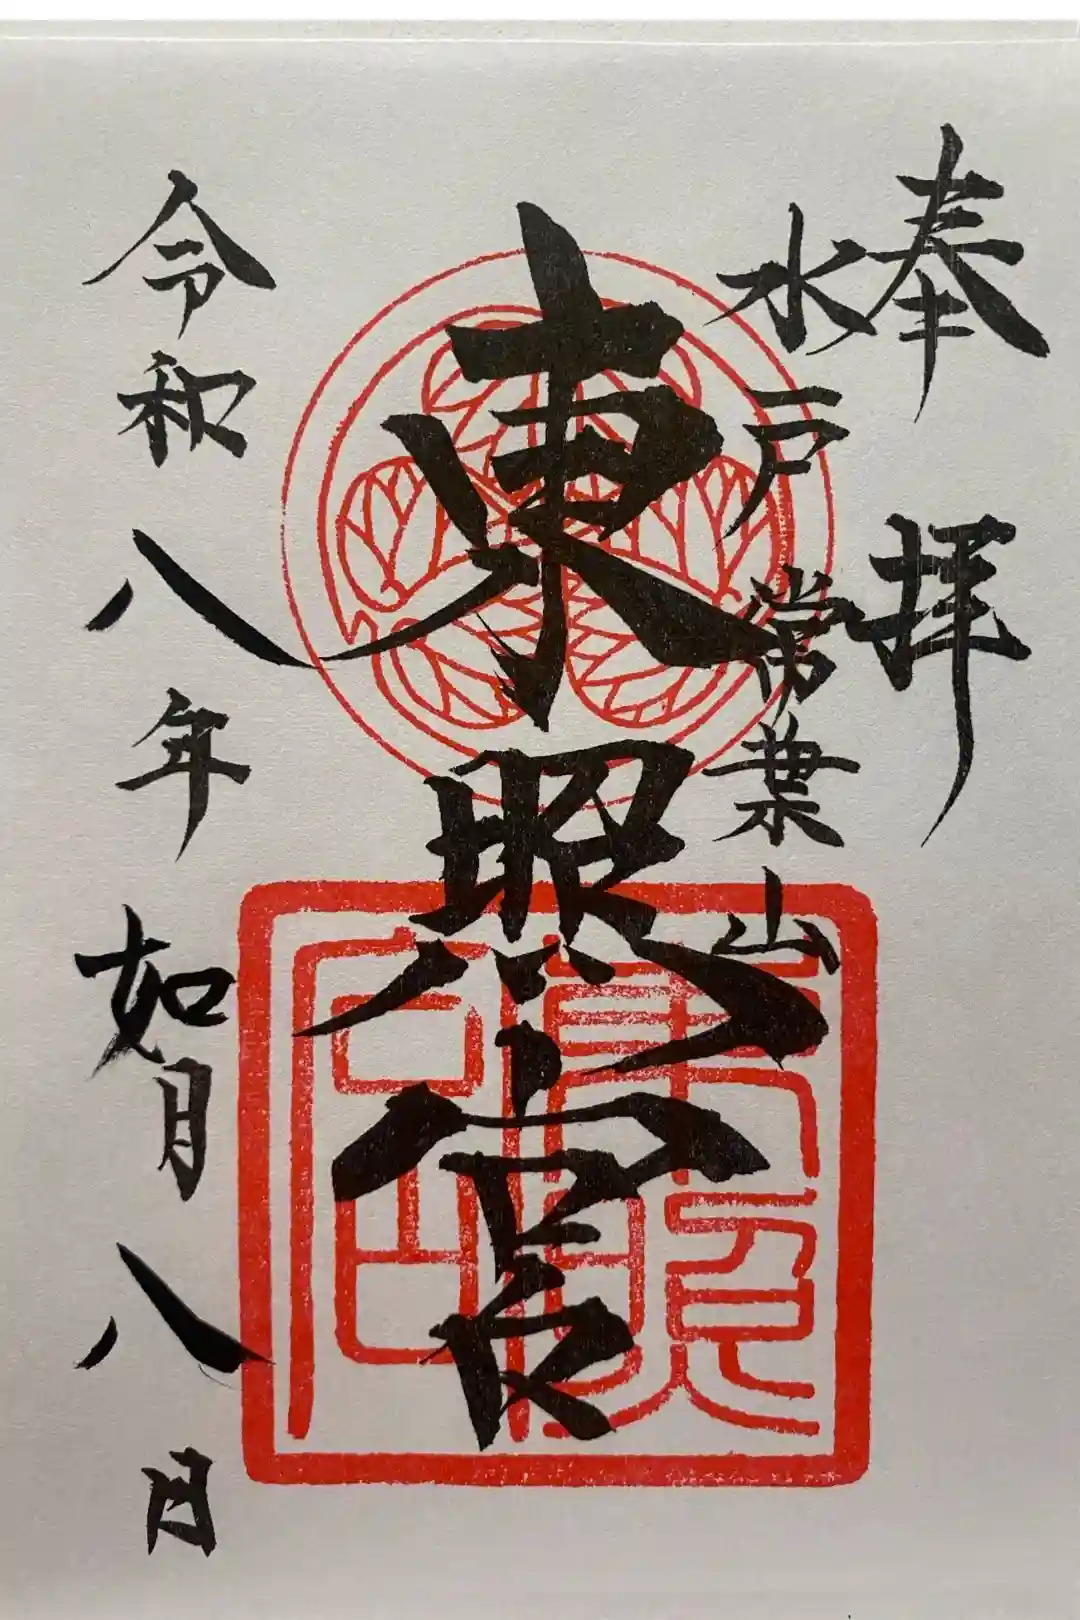 奉拝
水戸常葉山
東照宮
令和八年如月八日
東照宮